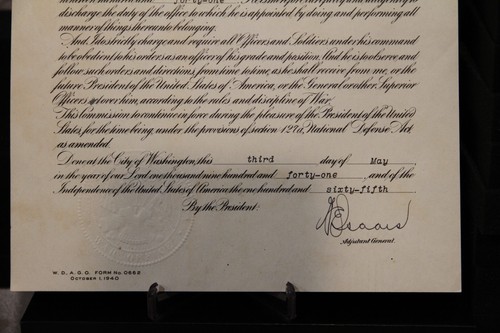 forty-one
discharge the duty of the office to which he is appointed by doing and performing all
manner of things thereunto belonging.
And I do strictly charge and require all Officers and Soldiers under his command
to be obedient to his orders as an officer of his grade and position. And he is to observe and
follow such orders and directions, from time to time, as he shall receive from me, or the
future President of the United States of America, or the General or other Superior
Officers set over him, according to the rules and discipline of War.
This Commission to continue in force during the pleasure of the President of the United
States, for the time being, under the provisions of section 127a, National Defense Act
as amended.
Done at the City of Washington, this third day of May
in the year of our Lord one thousand nine hundred and forty-one and of the
Independence of the United States of America the one hundred and sixty-fifth
By the President:
Adjutant General.
W. D., A. G. O. FORM No. 0652
October 1, 1940